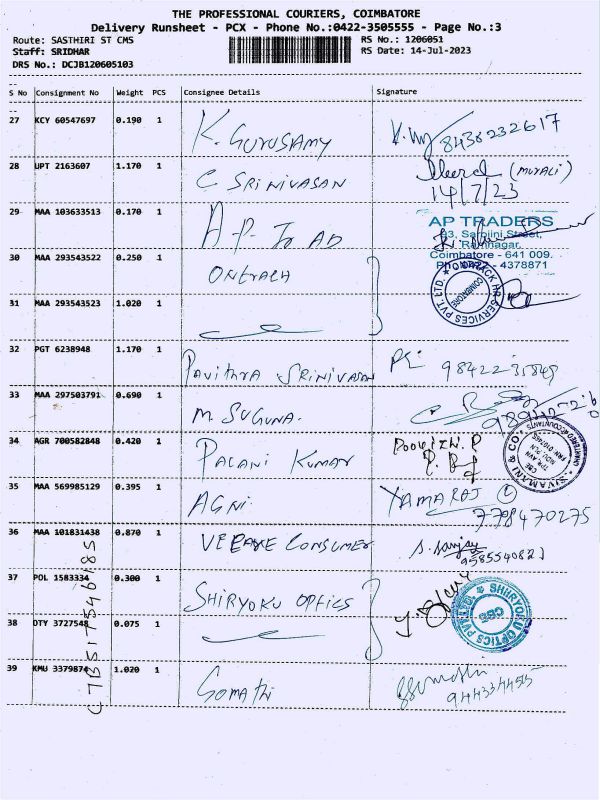 THE PROFESSIONAL COURIERS, COIMBATORE
Delivery Runsheet - PCX - Phone No.:0422-3505555 - Page No.:3
Route: SASTHIRI ST CMS RS No.: 1206051
Staff: SRIDHAR RS Date: 14-Jul-2023
DRS No.: DCJB120605103
S No Consignment No Weight PCS Consignee Details Signature
27 KCY 60547697 0.190 1 K. GURUSAMY 8438232617
28 UPT 2163607 1.170 1 C SRINIVASAN (MURALI)
14/7/23
29 MAA 103633513 0.170 1 A-P- AP TRADERS
Street,
Ramnagar,
Coimbatore - 641 009.
30 MAA 293543522 0.250 1 ONTRACK 4378871
ONTRACK HR SERVICES PVT. LTD.
COIMBATORE
31 MAA 293543523 1.020 1
32 PGT 6238948 1.170 1 PAVITHRA SRINIVASAN 9842235849
33 MAA 297503791 0.690 1 M. SUGUNA.
34 AGR 700582848 0.420 1 PALANI KUMAR
SIVAMANI & CO.
CHARTERED ACCOUNTANTS
35 MAA 569985129 0.395 1 AGNI YAMARAJ
7798470275
36 MAA 101831438 0.870 1 CONSUMER S. Sanjay
37 POL 1583334 0.300 1 SHIRYOKU OPTICS
SHIRYOKU OPTICS PVT. LTD.
CBE
38 DTY 3727548 0.075 1
39 KMU 3379874 1.020 1 Gomathi
9443344455